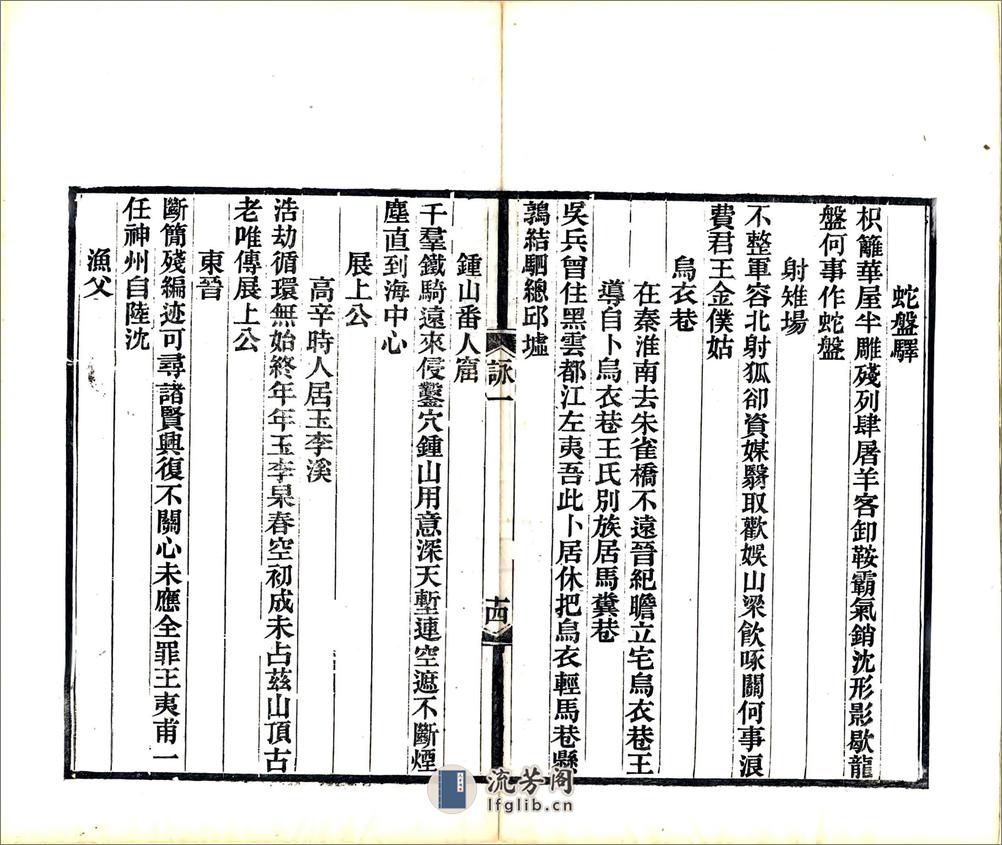 蛇盤驛
枳籬華屋半雕殘列肆屠羊客卸鞍霸氣銷沈形影歇龍
盤何事作蛇盤
射雉場
不整軍容北射狐卻資媒翳取歡娛山梁飲啄關何事浪
費君王金僕姑
烏衣巷
在秦淮南去朱雀橋不遠晉紀瞻立宅烏衣巷王
導自卜烏衣巷王氏別族居馬糞巷
吳兵曾住黑雲都江左夷吾此卜居休把烏衣輕馬巷懸
鶉結駟總邱墟
詠一
十四
鍾山番人窟
千羣鐵騎遠來侵鑿穴鍾山用意深天塹連空遮不斷煙
塵直到海中心
展上公
高辛時人居玉李溪
浩劫循環無始終年年玉李杲春空初成未占茲山頂古
老唯傳展上公
東晉
斷簡殘編迹可尋諸賢興復不關心未應全罪王夷甫一
任神州自陸沈
漁父
流芳阁
lfglib.cn